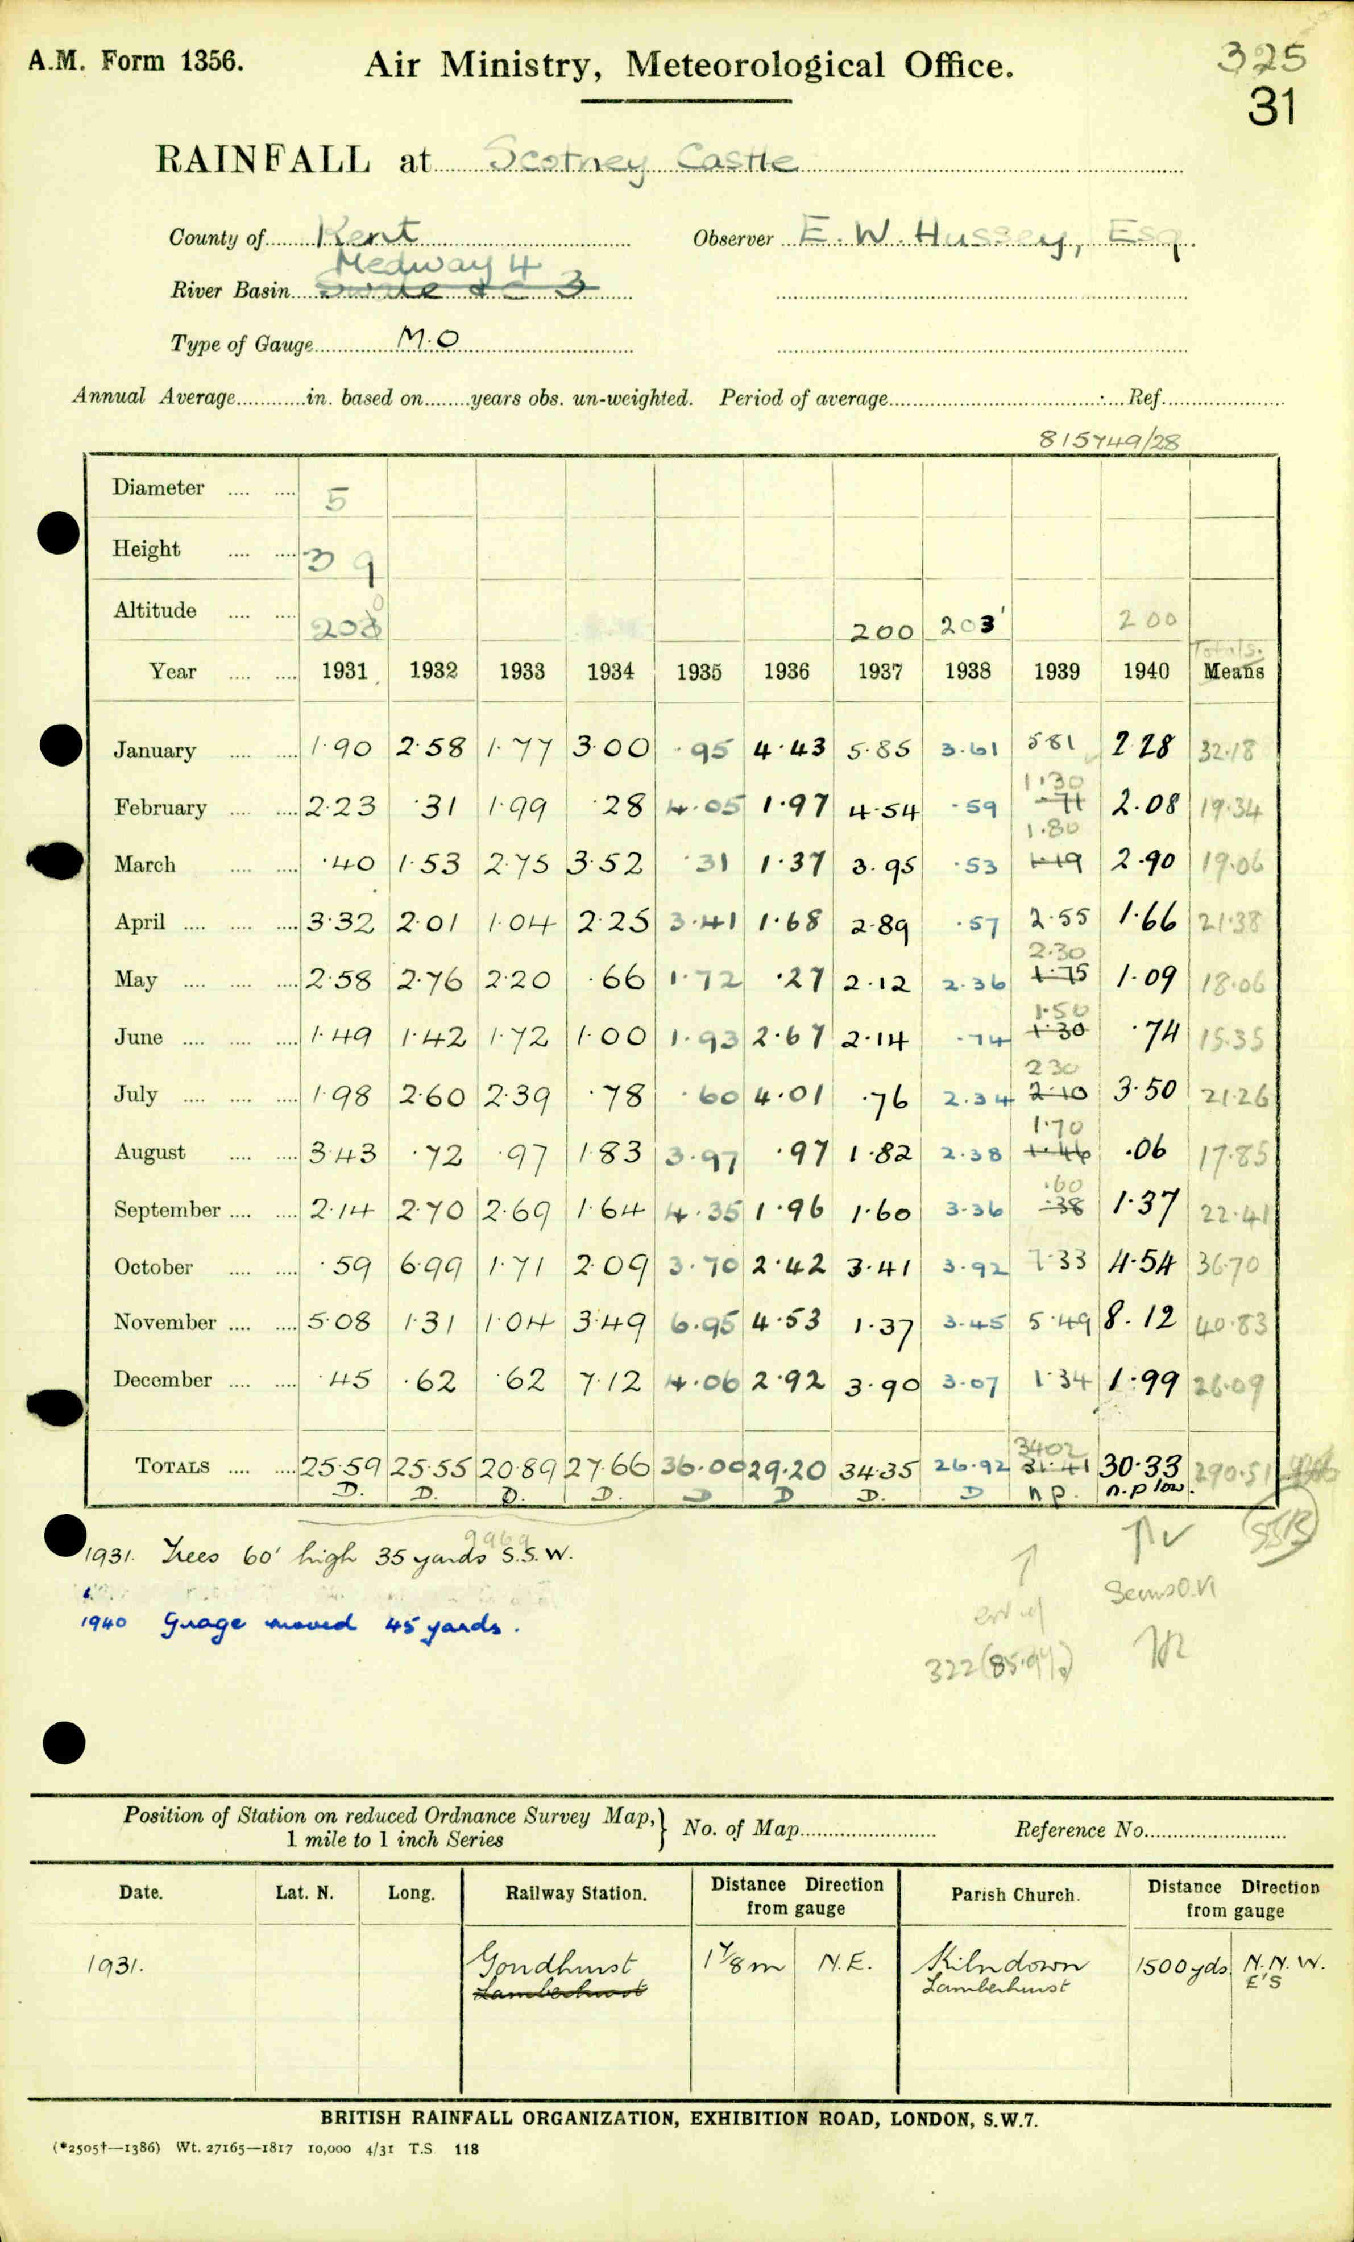 A.M. Form 1356. Air Ministry, Meteorological Office. 325
31
RAINFALL at Scotney Castle
County of Kent Observer E. W. Hussey, Esq
Medway 4
River Basin & C 3
Type of Gauge M.O
Annual Average in. based on years obs. un-weighted. Period of average Ref.
815749/28
Diameter 5
Height 3 9
Altitude 203 0 200 203' 200
Totals.
Year 1931 1932 1933 1934 1935 1936 1937 1938 1939 1940 Means
January 1.90 2.58 1.77 3.00 .95 4.43 5.85 3.61 5.81 2.28 32.18
1.30
February 2.23 .31 1.99 .28 4.05 1.97 4.54 .59 .71 2.08 19.34
1.80
March .40 1.53 2.75 3.52 .31 1.37 3.95 .53 1.19 2.90 19.06
April 3.32 2.01 1.04 2.25 3.41 1.68 2.89 .57 2.55 1.66 21.38
2.30
May 2.58 2.76 2.20 .66 1.72 .27 2.12 2.36 1.75 1.09 18.06
1.50
June 1.49 1.42 1.72 1.00 1.93 2.67 2.14 .74 1.30 .74 15.35
2.30
July 1.98 2.60 2.39 .78 .60 4.01 .76 2.34 2.10 3.50 21.26
1.70
August 3.43 .72 .97 1.83 3.97 .97 1.82 2.38 1.46 .06 17.85
.60
September 2.14 2.70 2.69 1.64 4.35 1.96 1.60 3.36 .38 1.37 22.41
October .59 6.99 1.71 2.09 3.70 2.42 3.41 3.92 7.33 4.54 36.70
November 5.08 1.31 1.04 3.49 6.95 4.53 1.37 3.45 5.49 8.12 40.83
December .45 .62 .62 7.12 4.06 2.92 3.90 3.07 1.34 1.99 26.09
34.02
TOTALS 25.59 25.55 20.89 27.66 36.00 29.20 34.35 26.92 31.41 30.33 290.51
D. D. D. D. D D D. D n p. n.p low.
9969
1931. Trees 60' high 35 yards S.S.W.
1940 Guage moved 45 yards.
322 (85.9%)
Position of Station on reduced Ordnance Survey Map, 1 mile to 1 inch Series } No. of Map Reference No.
Date. Lat. N. Long. Railway Station. Distance Direction from gauge Parish Church. Distance Direction from gauge
1931. Goudhurst 1 7/8 m N.E. Kilndown 1500 yds N.N.W.
Lamberhurst Lamberhurst E'S
BRITISH RAINFALL ORGANIZATION, EXHIBITION ROAD, LONDON, S.W.7.
(*2505†—1386) Wt. 27165—1817 10,000 4/31 T.S 118